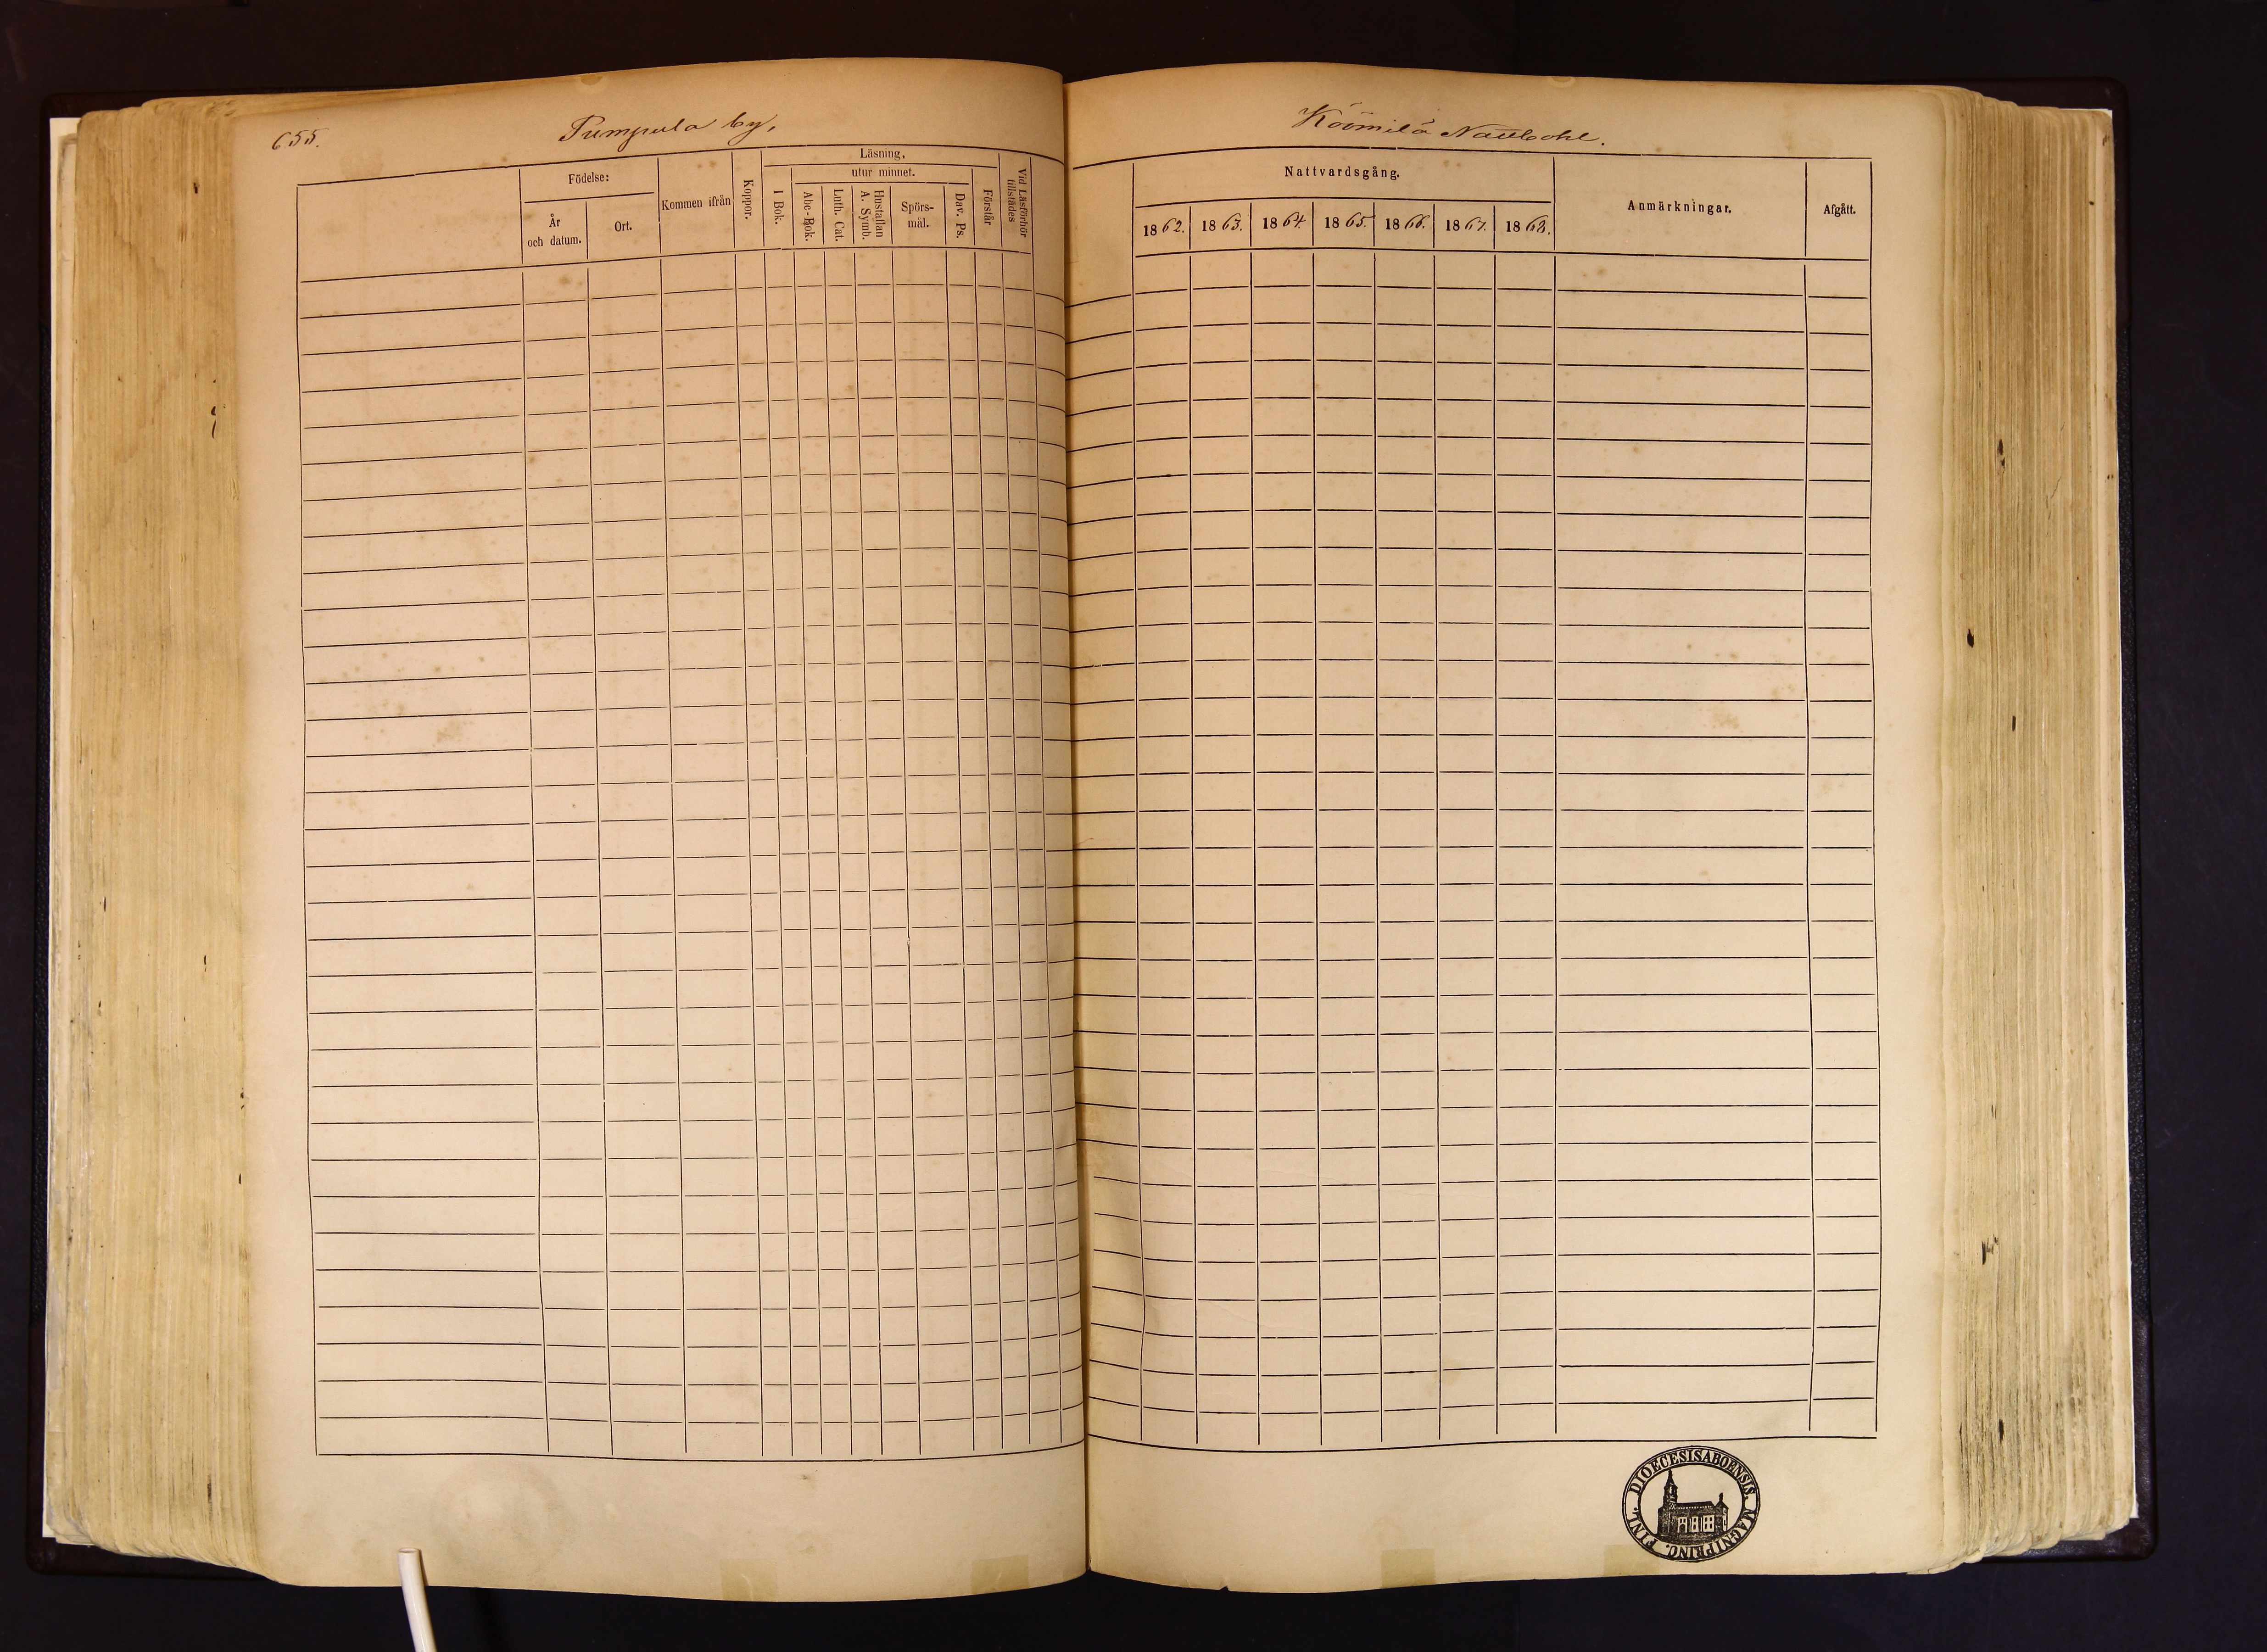 655.
Pumpula by,
Födelse:
År
och datum.
Ort.
Kommen ifrån
Koppor.
Läsning,
utur minnet.
I Bok.
Abc-Bok.
Luth. Cat.
Hustaflan
A. Symb.
Spörs-
mål.
Dav. Ps.
Förstår
Vid Läsförhör
tillstädes
Köömilä
Nattvardsgång.
1862. 1863. 1864. 1865. 1866. 1867. 1868.
Anmärkningar.
Afgått.
DIOECESISABOENSIS. MAGNIPRINC. FINL.